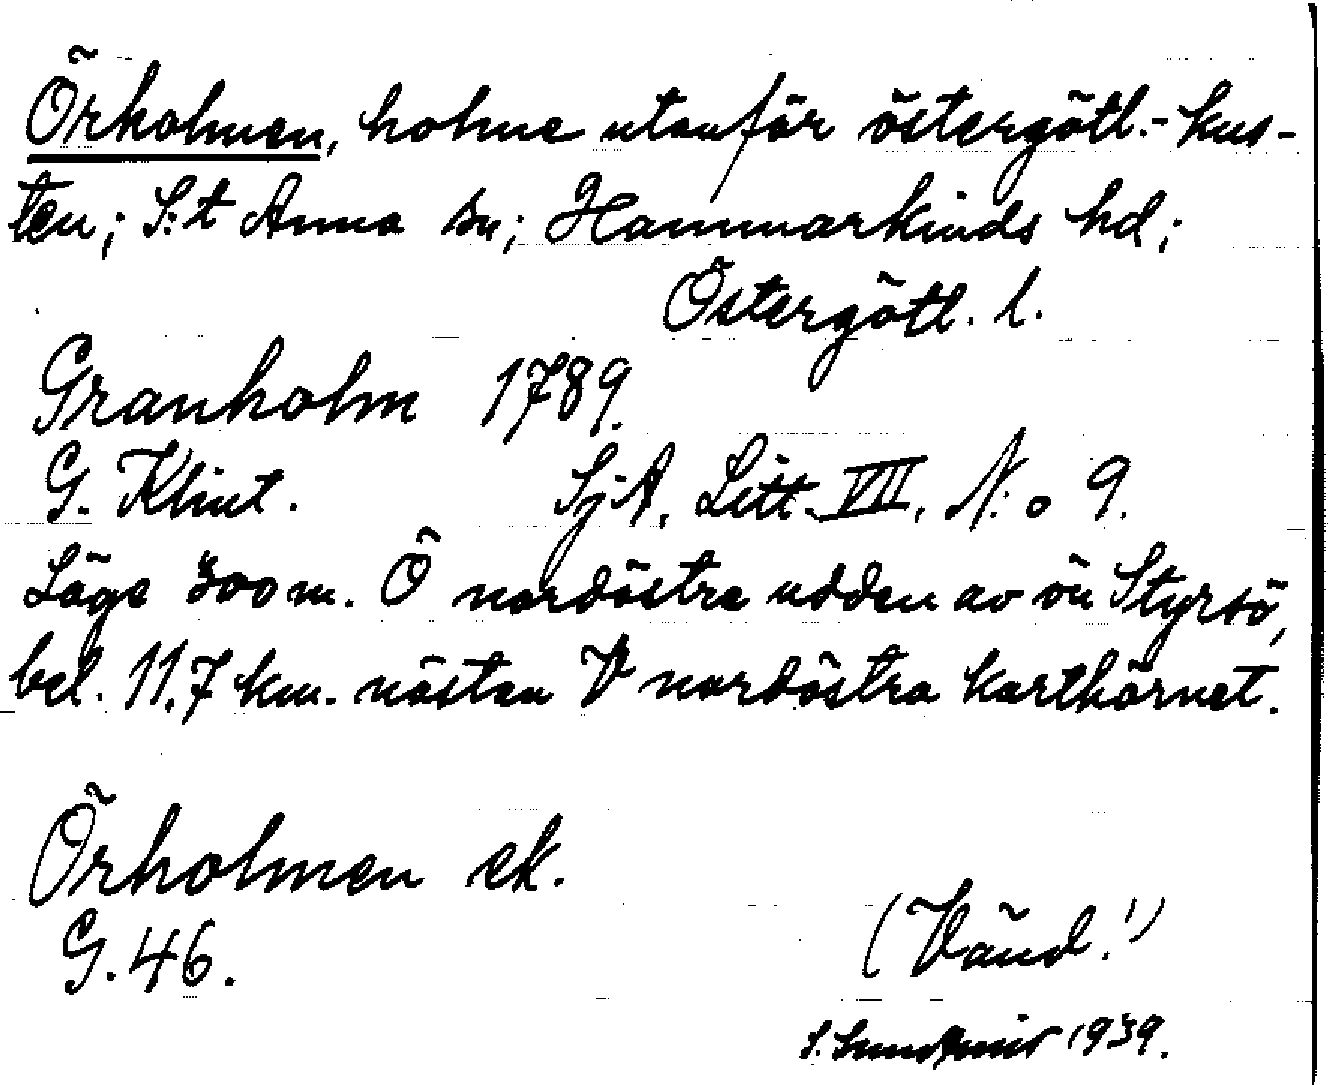 Örholmen, holme utanför östergötl.-kus-
ten; S:t Anna sn; Hammarkinds hd;
Östergötl. l.
Granholm 1789.
G. Klint. SjA, Litt. VII, N:o 9.
Läge 300 m. Ö nordöstra udden av ön Styrsö,
bel. 11.7 km. nästan V nordöstra karthörnet.
Örholmen ek.
G. 46.
(Vänd!)
1939.